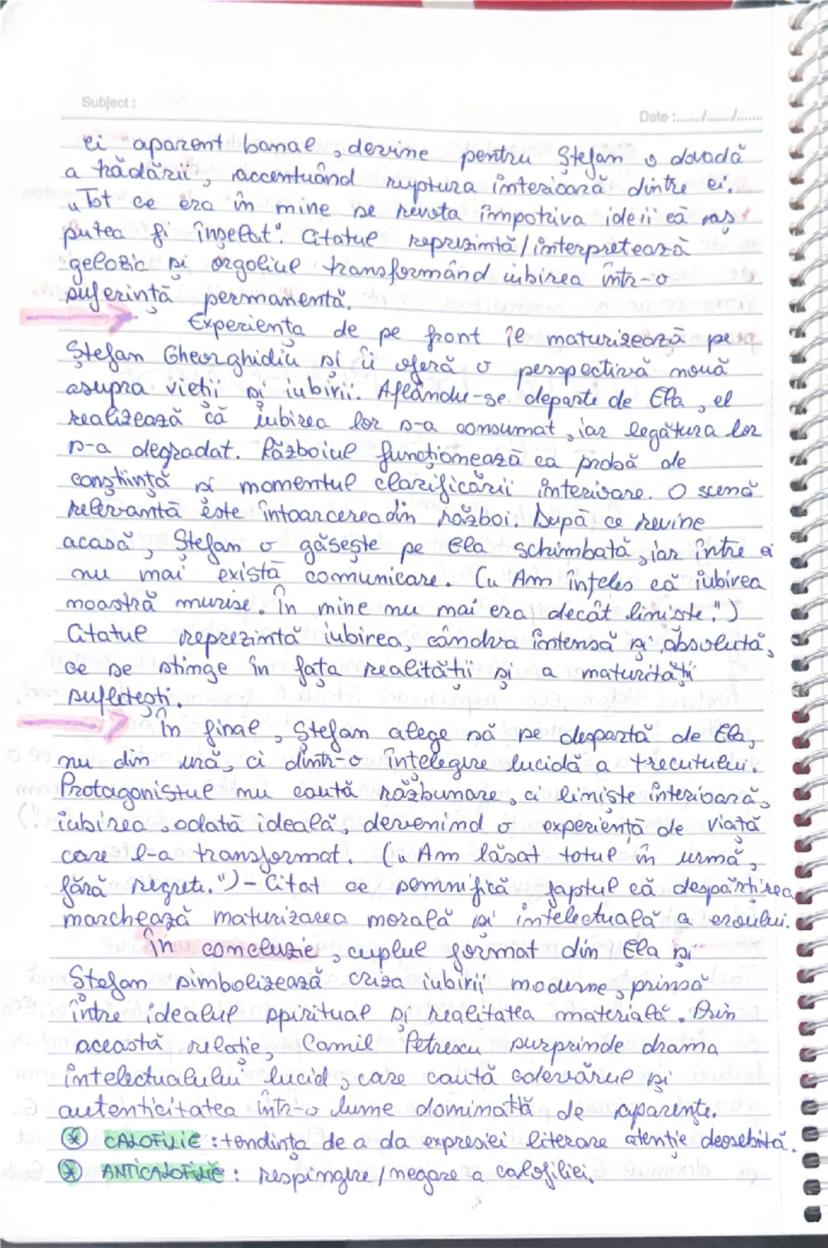 Subject :
Date :....../....../......
ei aparent banal, devine pentru Ștefan o dovadă
a trădării, accentuând ruptura interioară dintre ei.
„Tot ce era în mine se revolta împotriva ideii că
putea fi înșelat". Citatul reprezintă/interpretează
gelozia și orgoliul transformând iubirea într-o
suferință permanentă.
Experiența de pe front îl maturizează pe
Ștefan Gheorghidiu și îi oferă o perspectivă nouă
asupra vieții și iubirii. Aflându-se departe de Ela, el
realizează că iubirea lor s-a consumat, iar legătura lor
s-a degradat. Războiul funcționează ca probă de
conștiință și momentul clarificării interioare. O scenă
relevantă este întoarcerea din război. După ce revine
acasă, Ștefan o găsește pe Ela schimbată, iar între ei
nu mai există comunicare. („Am înțeles că iubirea
noastră murise. În mine nu mai era decât liniște.")
Citatul reprezintă iubirea, cândva intensă și absolută,
ce se stinge în fața realității și a maturității
sufletești.
În final, Ștefan alege să se despartă de Ela,
nu din ură, ci dintr-o înțelegere lucidă a trecutului.
Protagonistul nu caută răzbunare, ci liniște interioară,
iubirea, odată ideală, devenind o experiență de viață
care l-a transformat. („Am lăsat totul în urmă,
fără regret.")- Citat ce semnifică faptul că despărțirea
marchează maturizarea morală și intelectuală a eroului.
În concluzie, cuplul format din Ela și
Ștefan simbolizează criza iubirii moderne, prinsă
între idealul spiritual și realitatea materială. Prin
această relație, Camil Petrescu surprinde drama
intelectualului lucid, care caută adevărul și
autenticitatea într-o lume dominată de aparențe.
* CALOFILIE : tendința de a da expresiei literare atenție deosebită.
* ANTICALOFILIE : respingere/negare a calofiliei.